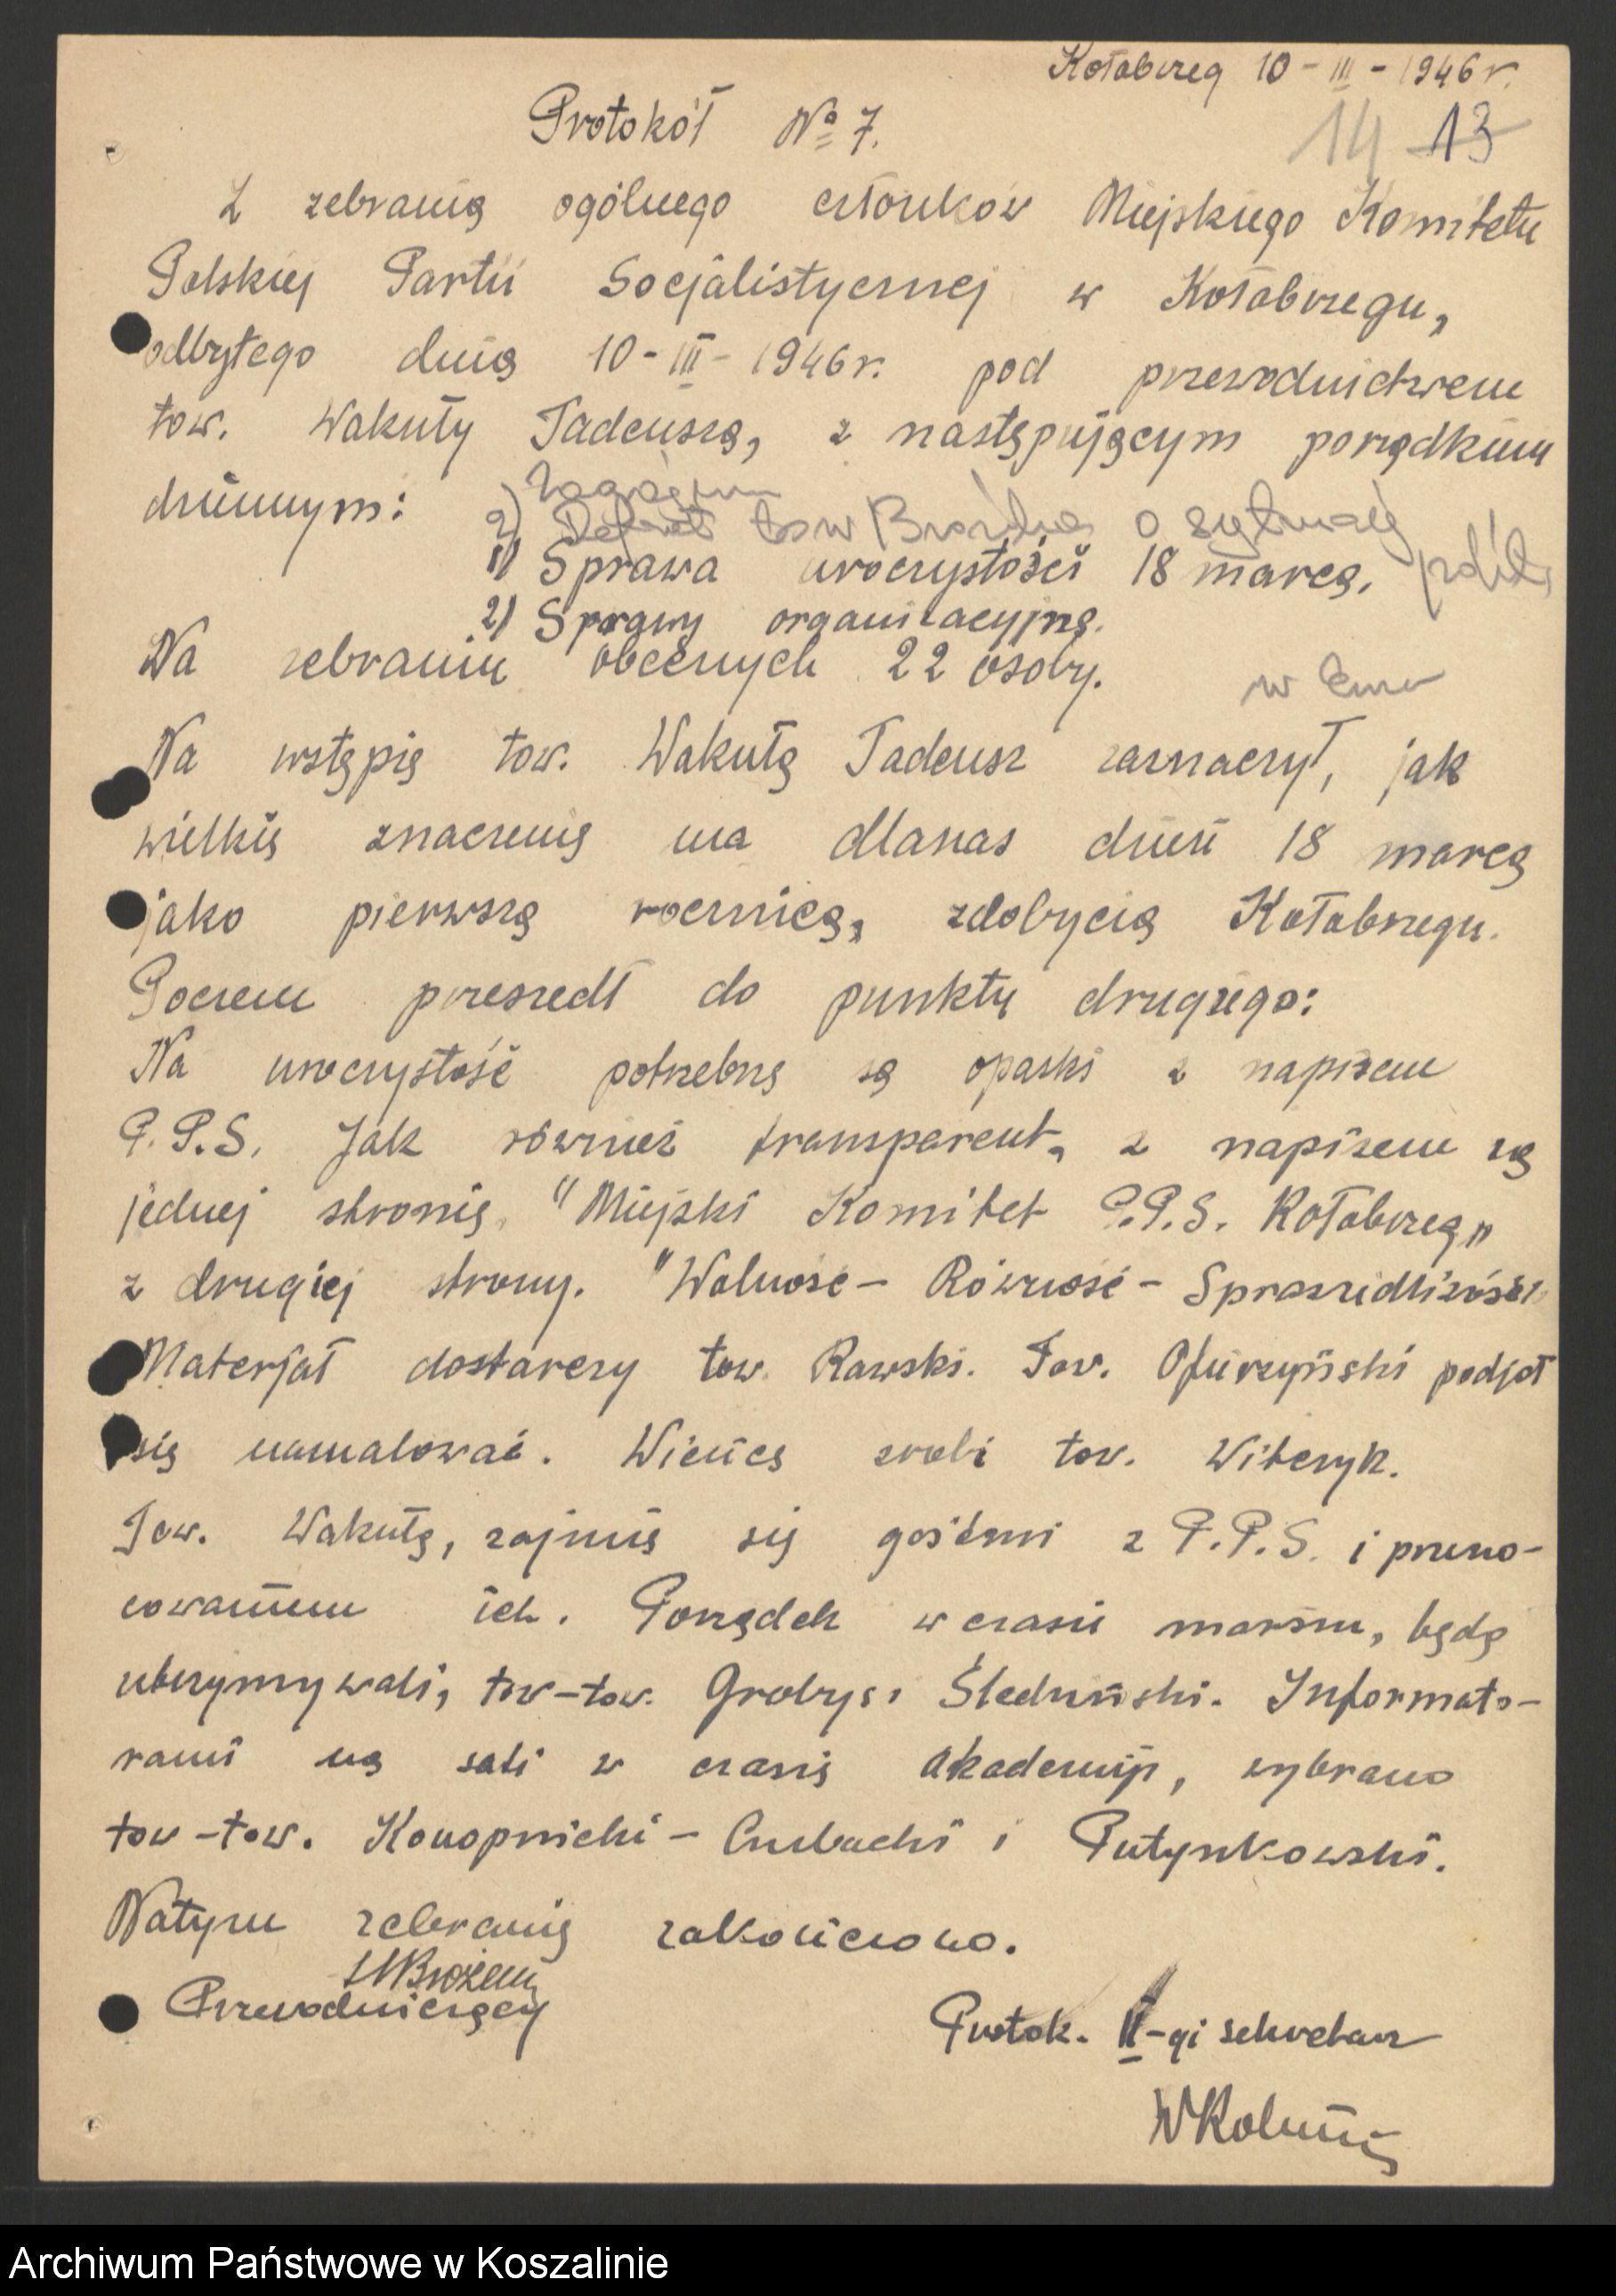 Kołobrzeg 10-III-1946r.
Protokół № 7.
14 13
Z zebrania ogólnego członków Miejskiego Komitetu
Polskiej Partii Socjalistycznej w Kołobrzegu,
odbytego dnia 10-III-1946r. pod przewodnictwem
tow. Wakuły Tadeusza, z następującym porządkiem
dziennym:
Zagajenie
2) Referat tow o sytuacji
1) Sprawa uroczystości 18 marca.
2) Sprawy organizacyjne.
Na zebraniu obecnych 22 osoby.
Na wstępie tow. Wakuła Tadeusz zaznaczył, jak
wielkie znaczenie ma dlanas dzień 18 marca
jako pierwsza rocznica, zdobycia Kołobrzegu.
Poczem przeszedł do punktu drugiego:
Na uroczystość potrzebne są opaski z napisem
P.P.S. Jak również transparent, z napisem na
jednej stronie, "Miejski Komitet P.P.S. Kołobrzeg"
z drugiej strony. "Wolność - Równość - Sprawiedliwość"
Materjał dostarczy tow. Rawski. Tow. podjął
się namalować. Wieniec zrobi tow. Witczyk.
Tow. Wakuła, zajmie się gośćmi z P.P.S. i przeno-
cowaniem ich. Porządek w czasie marszu, będą
utrzymywali, tow-tow. Grobys i Śledziński. Informato-
rami na sali w czasie akademii, wybrano
tow-tow. Konopnicki - Cubacki i Putynkowski.
Natym zebranie zakończono.
Przewodniczący
Protok. II-gi sekretarz